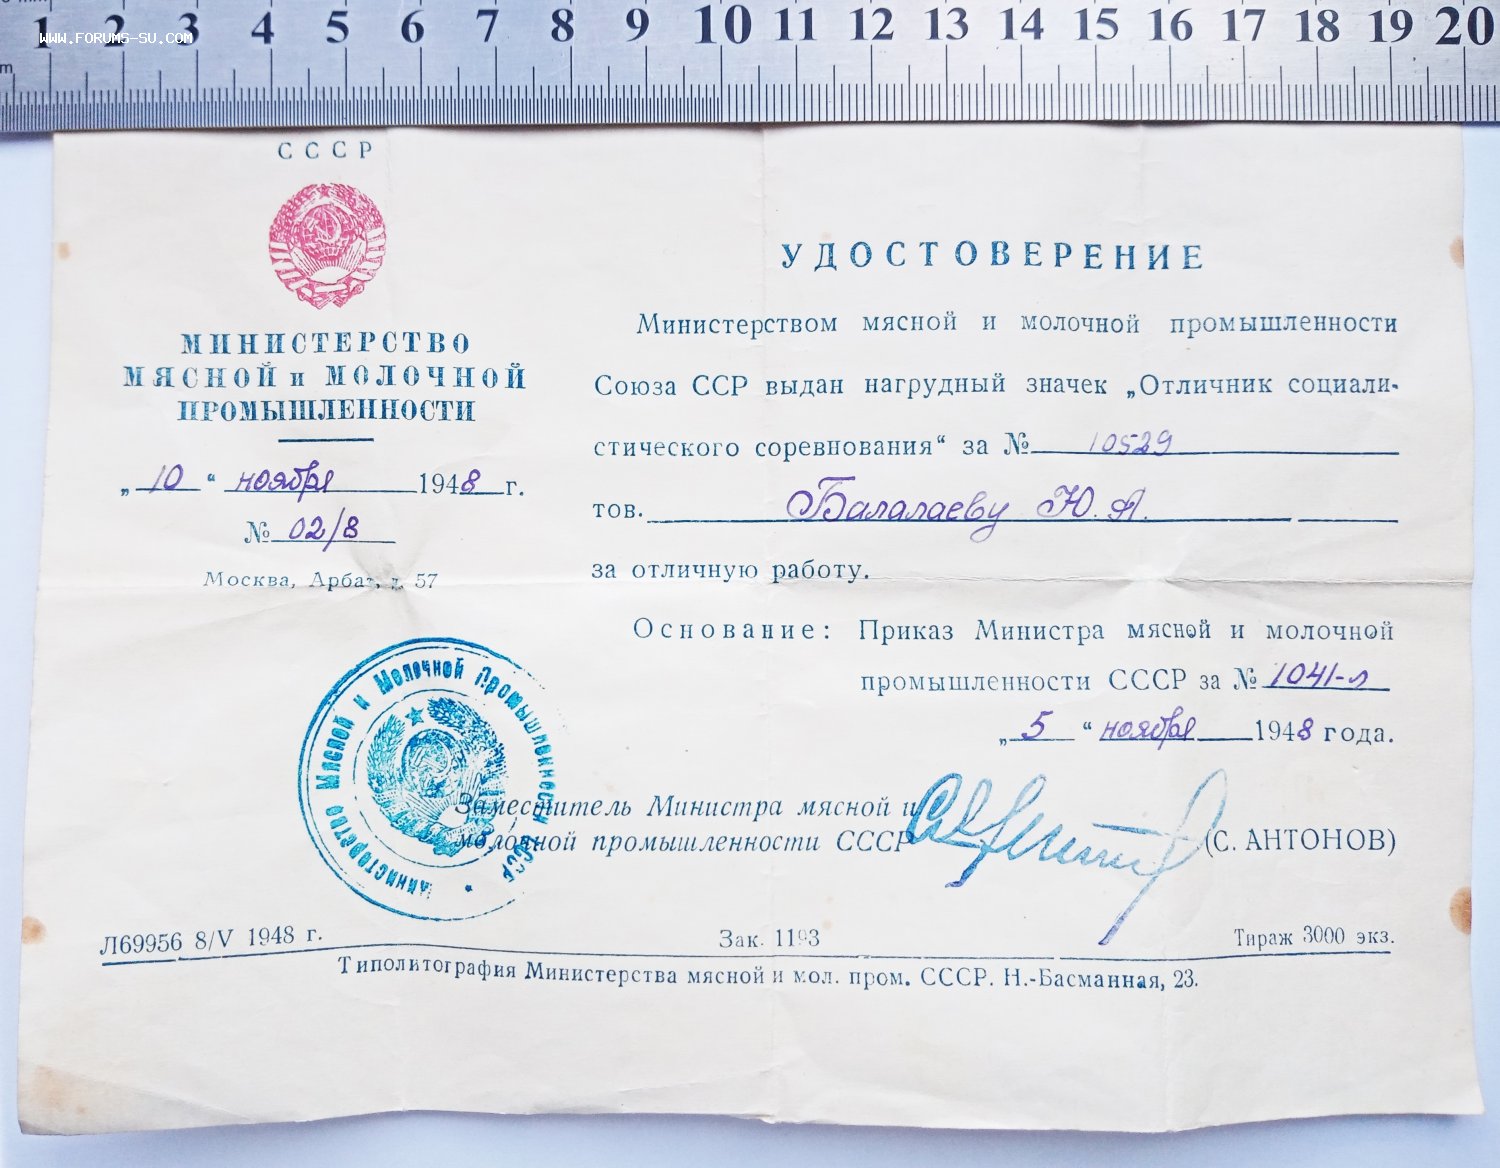 1 2 3 4 5 6 7 8 9 10 11 12 13 14 15 16 17 18 19 20
www.forums-su.com
СССР
МИНИСТЕРСТВО
МЯСНОЙ и МОЛОЧНОЙ
ПРОМЫШЛЕННОСТИ
„10“ ноября 1948 г.
№ 02/8
Москва, Арбат, д. 57
УДОСТОВЕРЕНИЕ
Министерством мясной и молочной промышленности
Союза ССР выдан нагрудный значек „Отличник социали-
стического соревнования“ за № 10529
тов. Балалаеву Ю. А.
за отличную работу.
Основание: Приказ Министра мясной и молочной
промышленности СССР за № 1041-л
„5“ ноября 1948 года.
Министерство Мясной и Молочной Промышленности СССР
Заместитель Министра мясной и
молочной промышленности СССР
(С. АНТОНОВ)
Л69956 8/V 1948 г. Зак. 1193 Тираж 3000 экз.
Типолитография Министерства мясной и мол. пром. СССР. Н.-Басманная, 23.